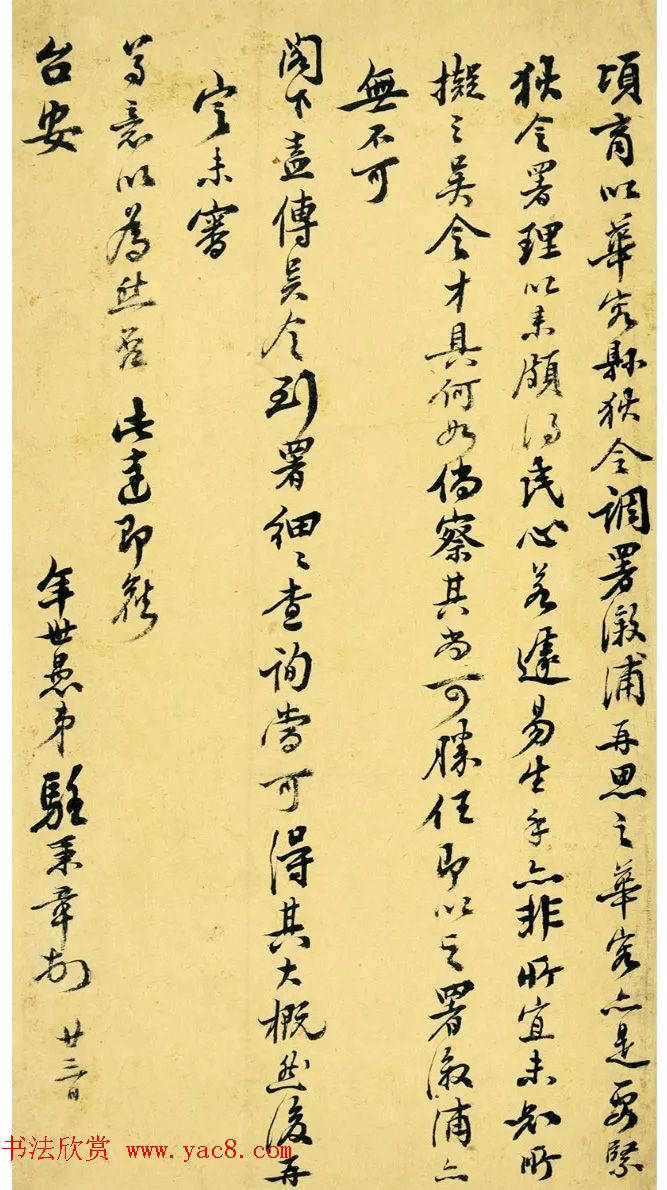 頃商以華容縣狄令調署漵浦再思之華容亦是要緊
狄令署理以來頗得民心若遽易生手亦非所宜未知所
擬之吳令才具何如倘察其尚可勝任即以之署漵浦亦
無不可
閣下盍傳吳令到署細細查詢當可得其大概然後再
定未審
尊意以為然否 此達即頌
台安
年世愚弟駱秉章 廿三日
书法欣赏 www.yac8.com